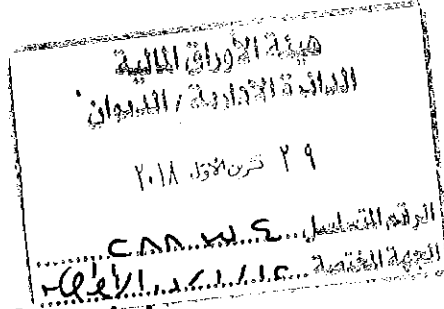 هيئة الأوراق المالية
الدائرة الادارية / الديوان
٢٩ تشرين الاول ٢٠١٨
الرقم المتسلسل
الجهة المختصة